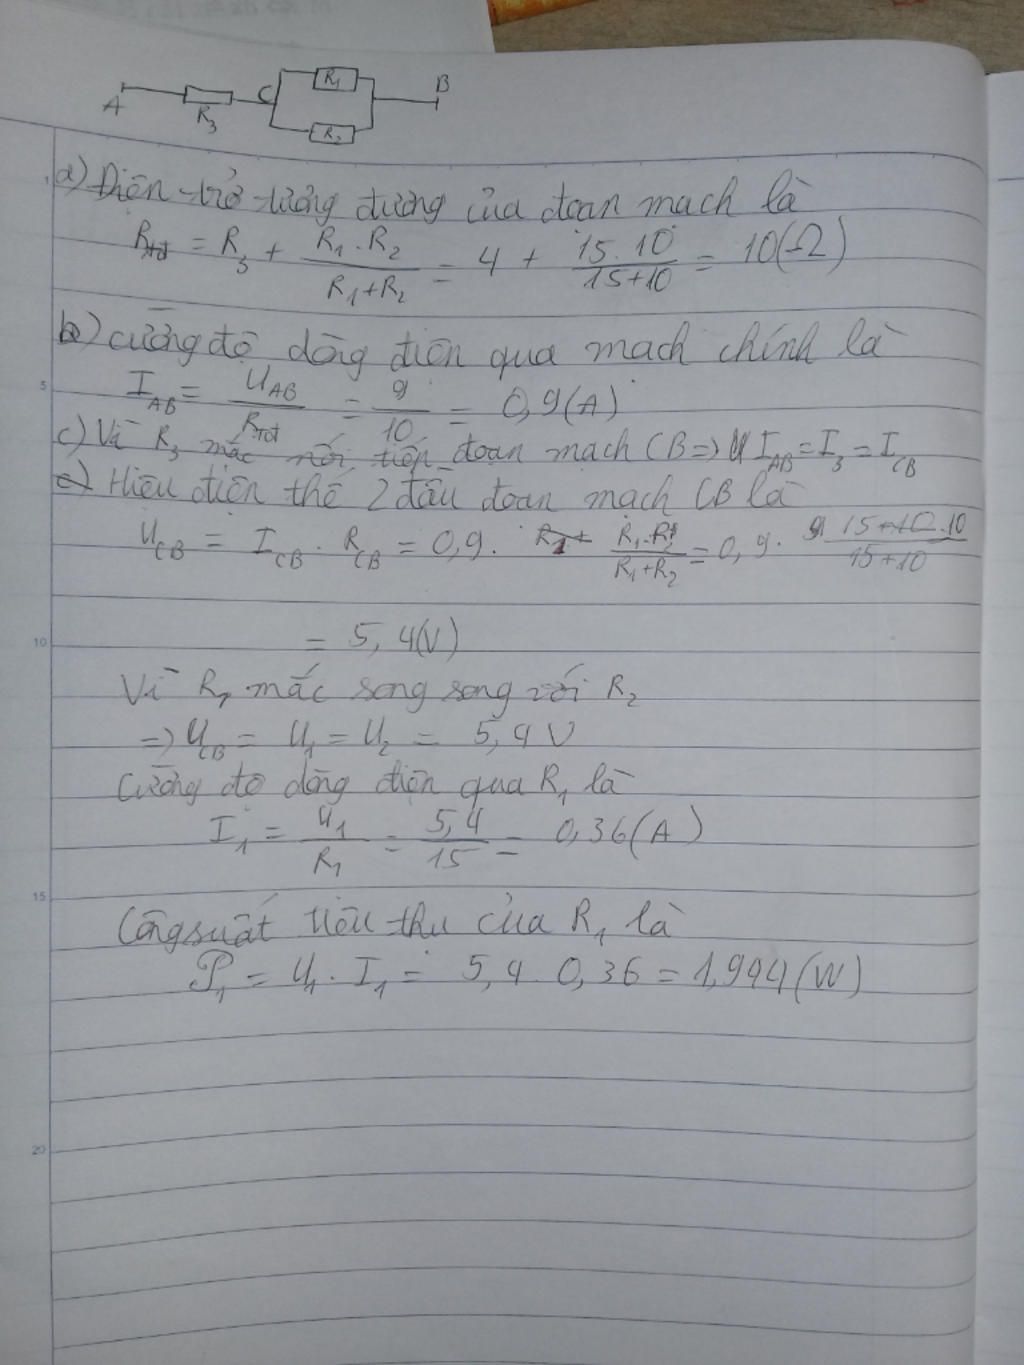 A R₃ C R₁ R₂ B
a) Điện trở tương đương của đoạn mạch là
Rtđ = R₃ + R₁.R₂/R₁+R₂ = 4 + 15.10/15+10 = 10(Ω)
b) cường độ dòng điện qua mạch chính là
I_AB = U_AB/Rtđ = 9/10 = 0,9(A)
c) Vì R₃ mắc nối tiếp đoạn mạch CB => I_AB = I₃ = I_CB
Hiệu điện thế 2 đầu đoạn mạch CB là
U_CB = I_CB . R_CB = 0,9. R₁.R₂/R₁+R₂ = 0,9. 15.10/15+10
= 5,4(V)
Vì R₁ mắc song song với R₂
=> U_CB = U₁ = U₂ = 5,4 V
Cường độ dòng điện qua R₁ là
I₁ = U₁/R₁ = 5,4/15 = 0,36(A)
Công suất tiêu thụ của R₁ là
P₁ = U₁ . I₁ = 5,4 . 0,36 = 1,944(W)
5
10
15
20